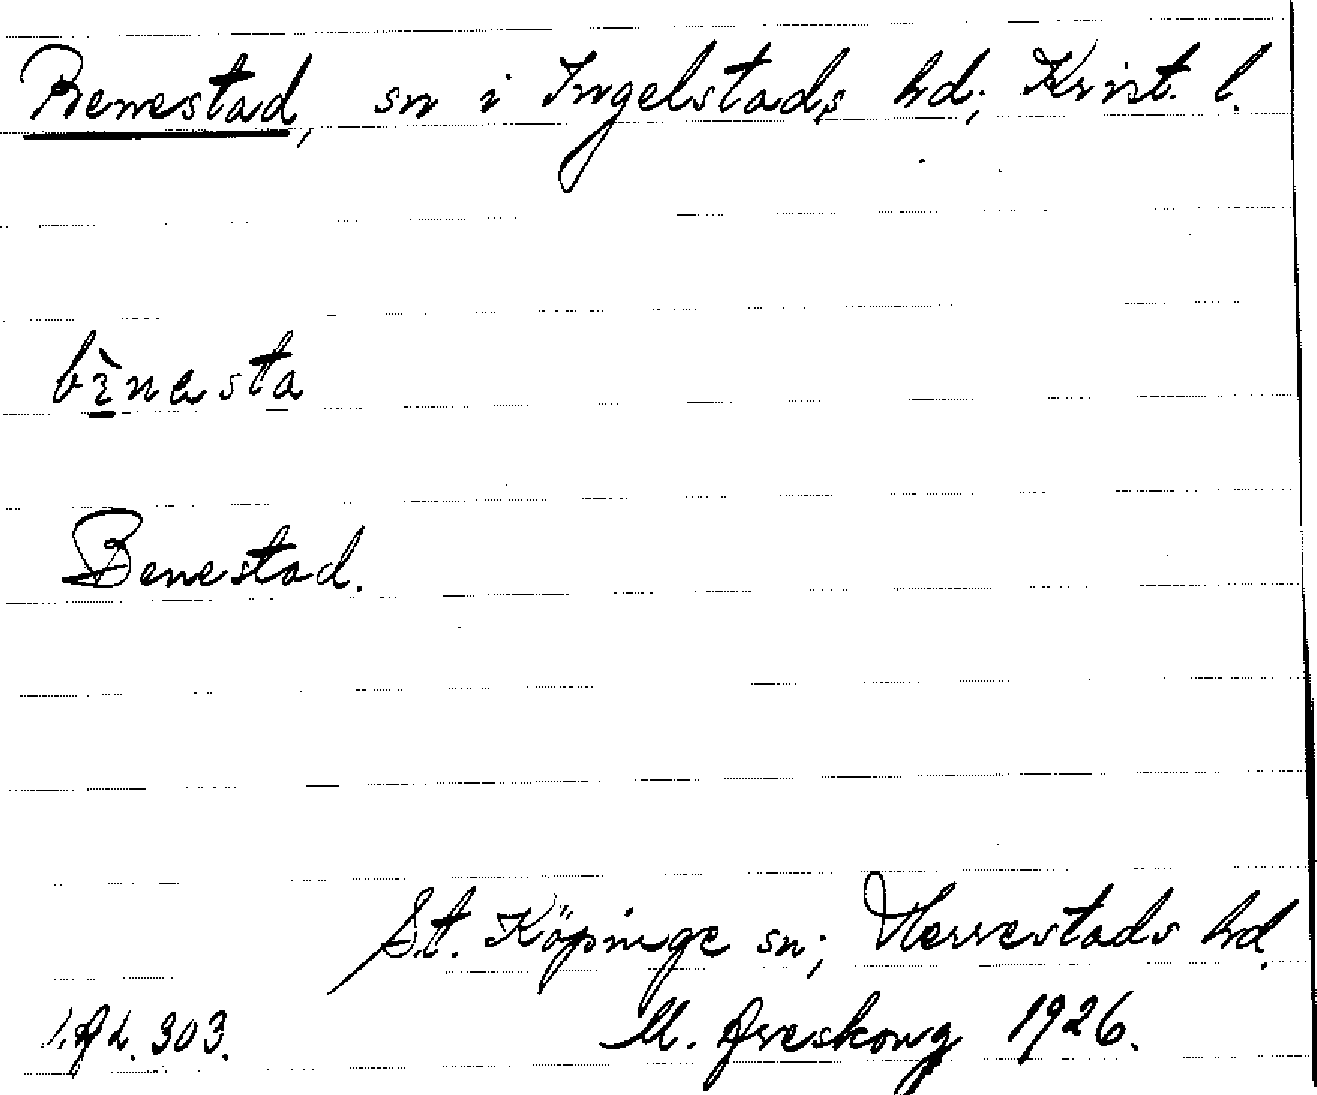 Benestad, sn i Ingelstads hd, Krist. l.
bènesta
Benestad.
St. Köpinge sn; Herrestads hd.
303. M. Areskoug 1926.